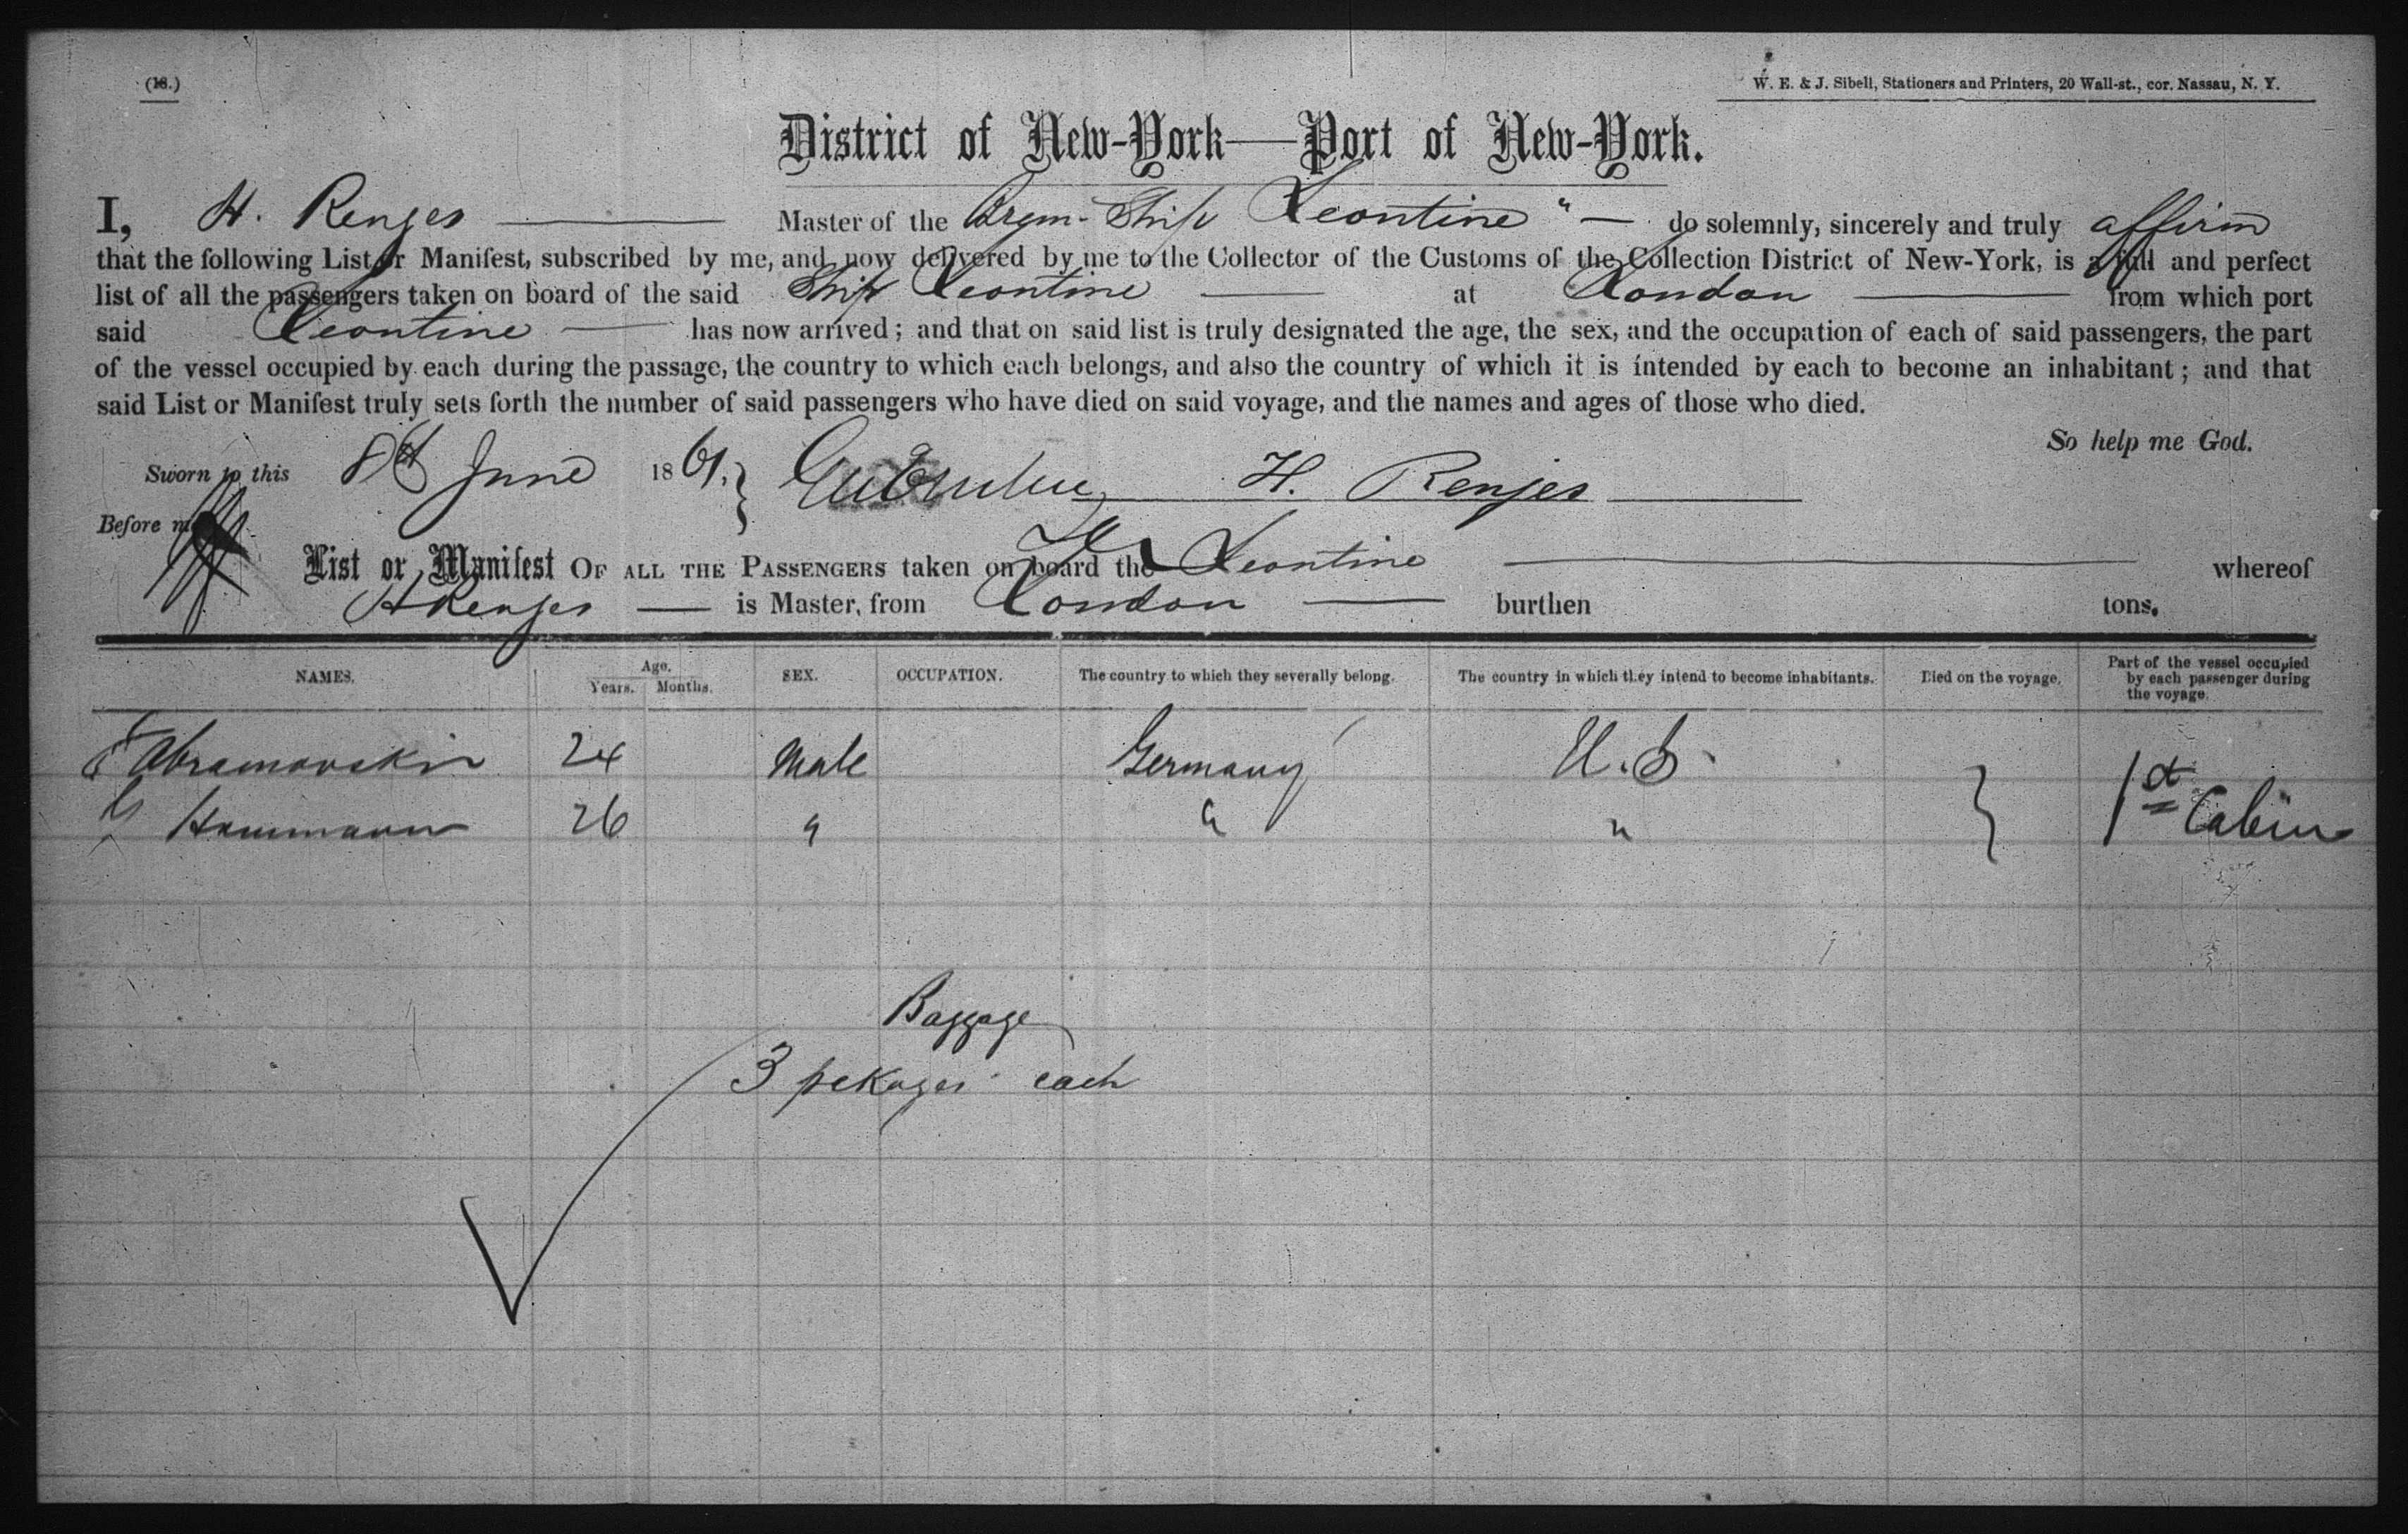 (18.)
W. E. & J. Sibell, Stationers and Printers, 20 Wall-st., cor. Nassau, N. Y.
District of New-York—Port of New-York.
I, H. Renjes Master of the Brem- Ship Leontine " do solemnly, sincerely and truly affirm
that the following List or Manifest, subscribed by me, and now delivered by me to the Collector of the Customs of the Collection District of New-York, is a full and perfect
list of all the passengers taken on board of the said Ship Leontine at London from which port
said Leontine has now arrived; and that on said list is truly designated the age, the sex, and the occupation of each of said passengers, the part
of the vessel occupied by each during the passage, the country to which each belongs, and also the country of which it is intended by each to become an inhabitant; and that
said List or Manifest truly sets forth the number of said passengers who have died on said voyage, and the names and ages of those who died.
So help me God.
Sworn to this 8th June 1861. H. Renjes
Before me
List or Manifest OF ALL THE PASSENGERS taken on board the Leontine whereof
H Renjes is Master, from London burthen tons.
NAMES. Age. Years. Months. SEX. OCCUPATION. The country to which they severally belong. The country in which they intend to become inhabitants. Died on the voyage. Part of the vessel occupied by each passenger during the voyage.
Abramovskin 24 Male Germany U. S.
Hammann 26 " " " 1st Cabin
Baggage
3 pekages each